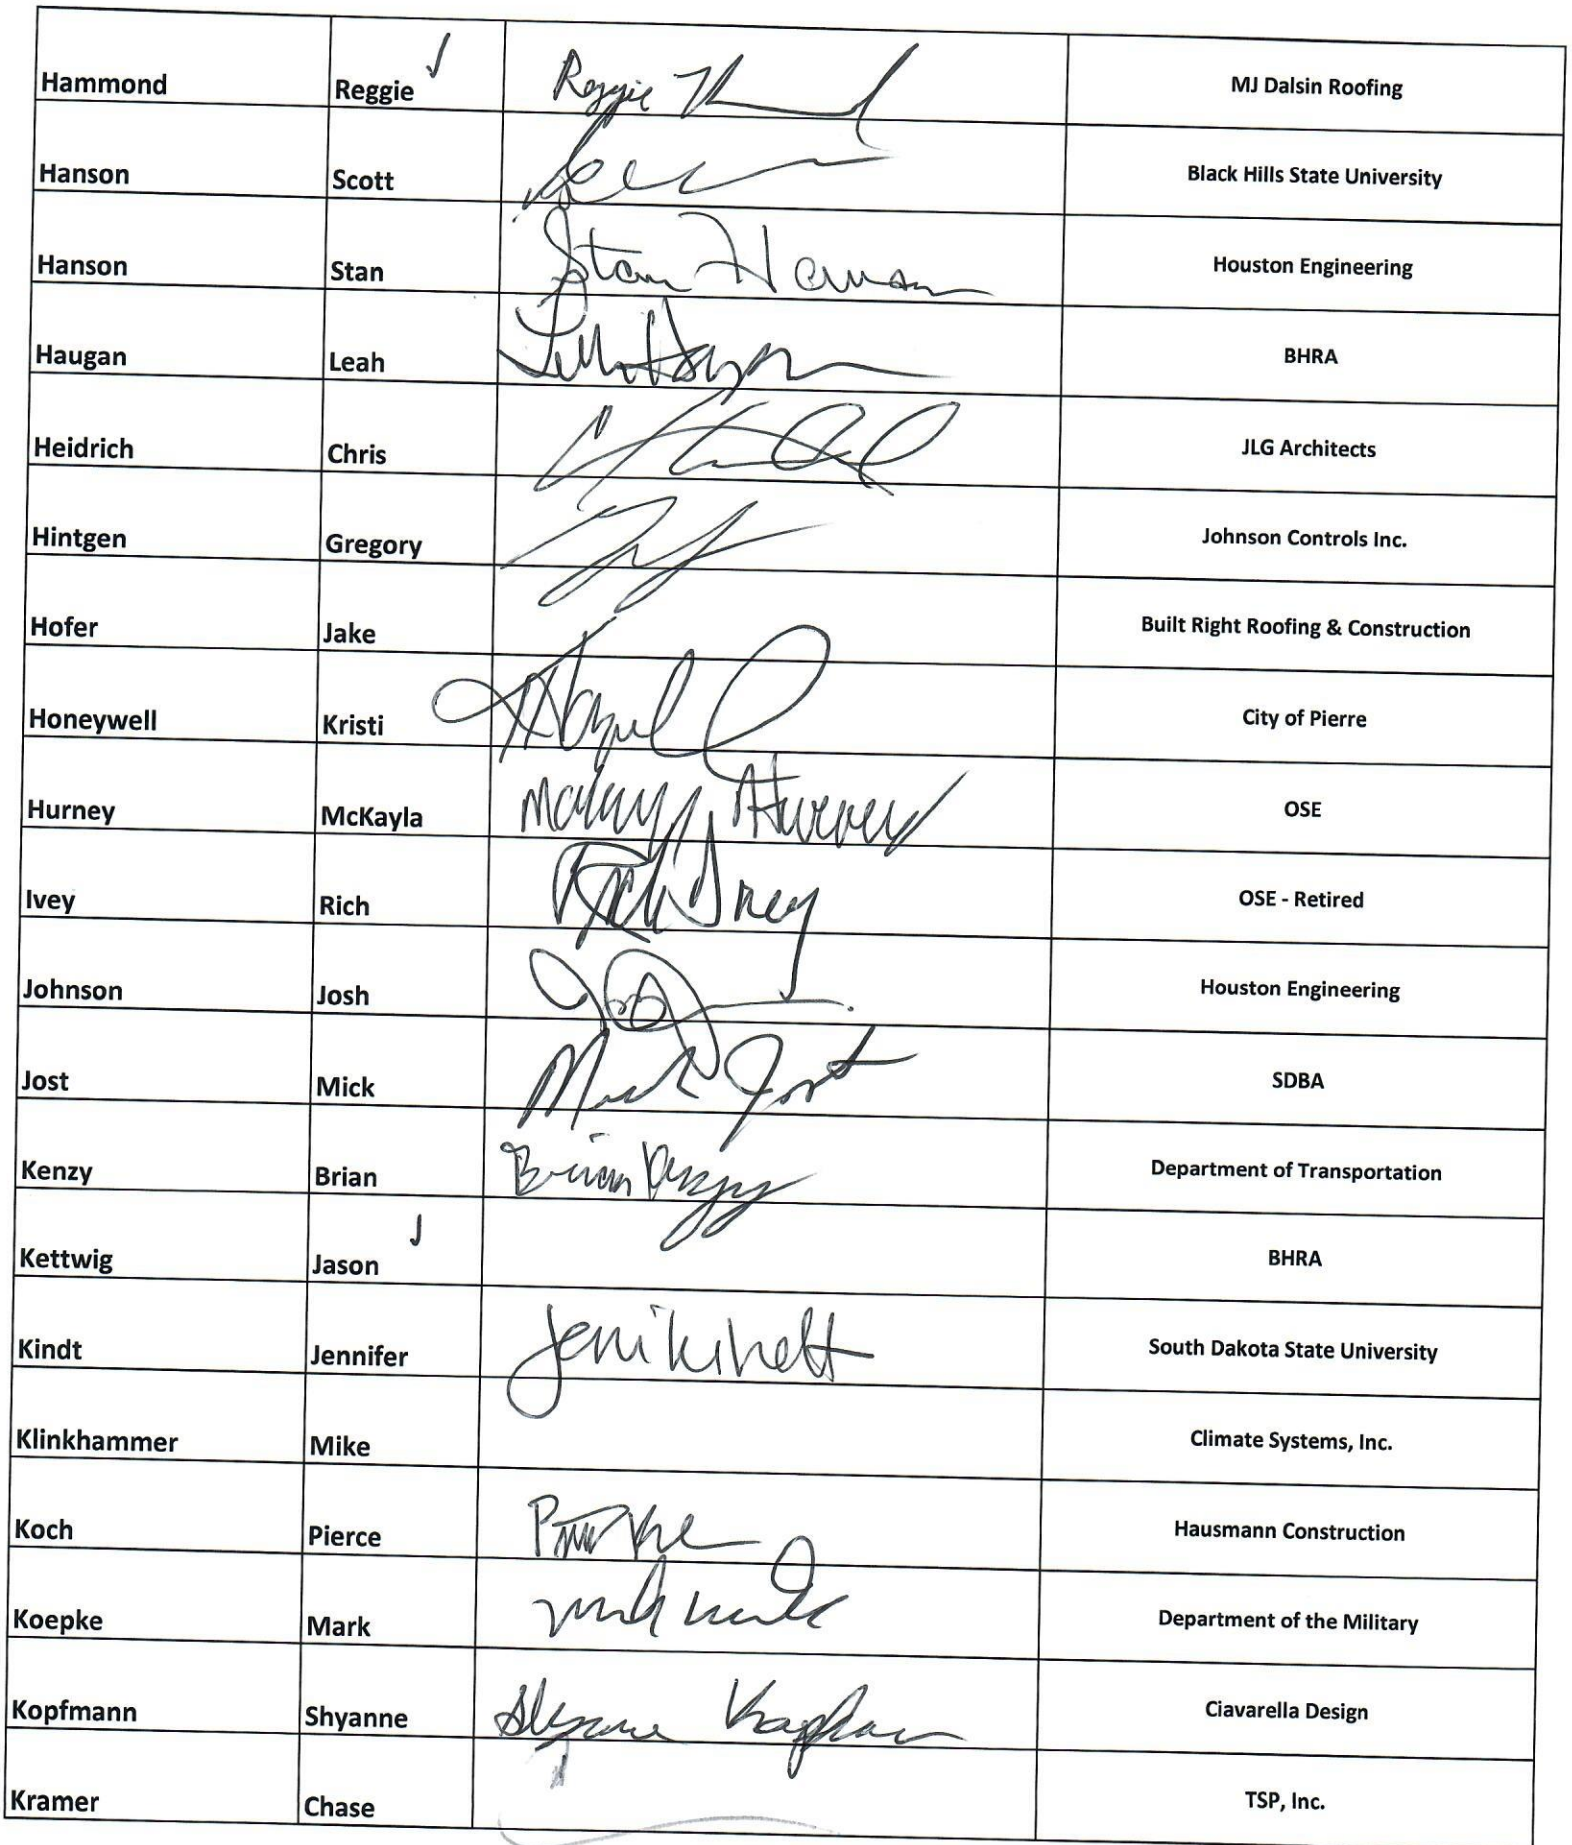 Hammond Reggie Reggie MJ Dalsin Roofing
Hanson Scott Black Hills State University
Hanson Stan Stan Hanson Houston Engineering
Haugan Leah BHRA
Heidrich Chris JLG Architects
Hintgen Gregory Johnson Controls Inc.
Hofer Jake Built Right Roofing & Construction
Honeywell Kristi City of Pierre
Hurney McKayla Hurney OSE
Ivey Rich Rich Ivey OSE - Retired
Johnson Josh Houston Engineering
Jost Mick Mick Jost SDBA
Kenzy Brian Brian Kenzy Department of Transportation
Kettwig Jason BHRA
Kindt Jennifer South Dakota State University
Klinkhammer Mike Climate Systems, Inc.
Koch Pierce Hausmann Construction
Koepke Mark Department of the Military
Kopfmann Shyanne Shyanne Kopfmann Ciavarella Design
Kramer Chase TSP, Inc.